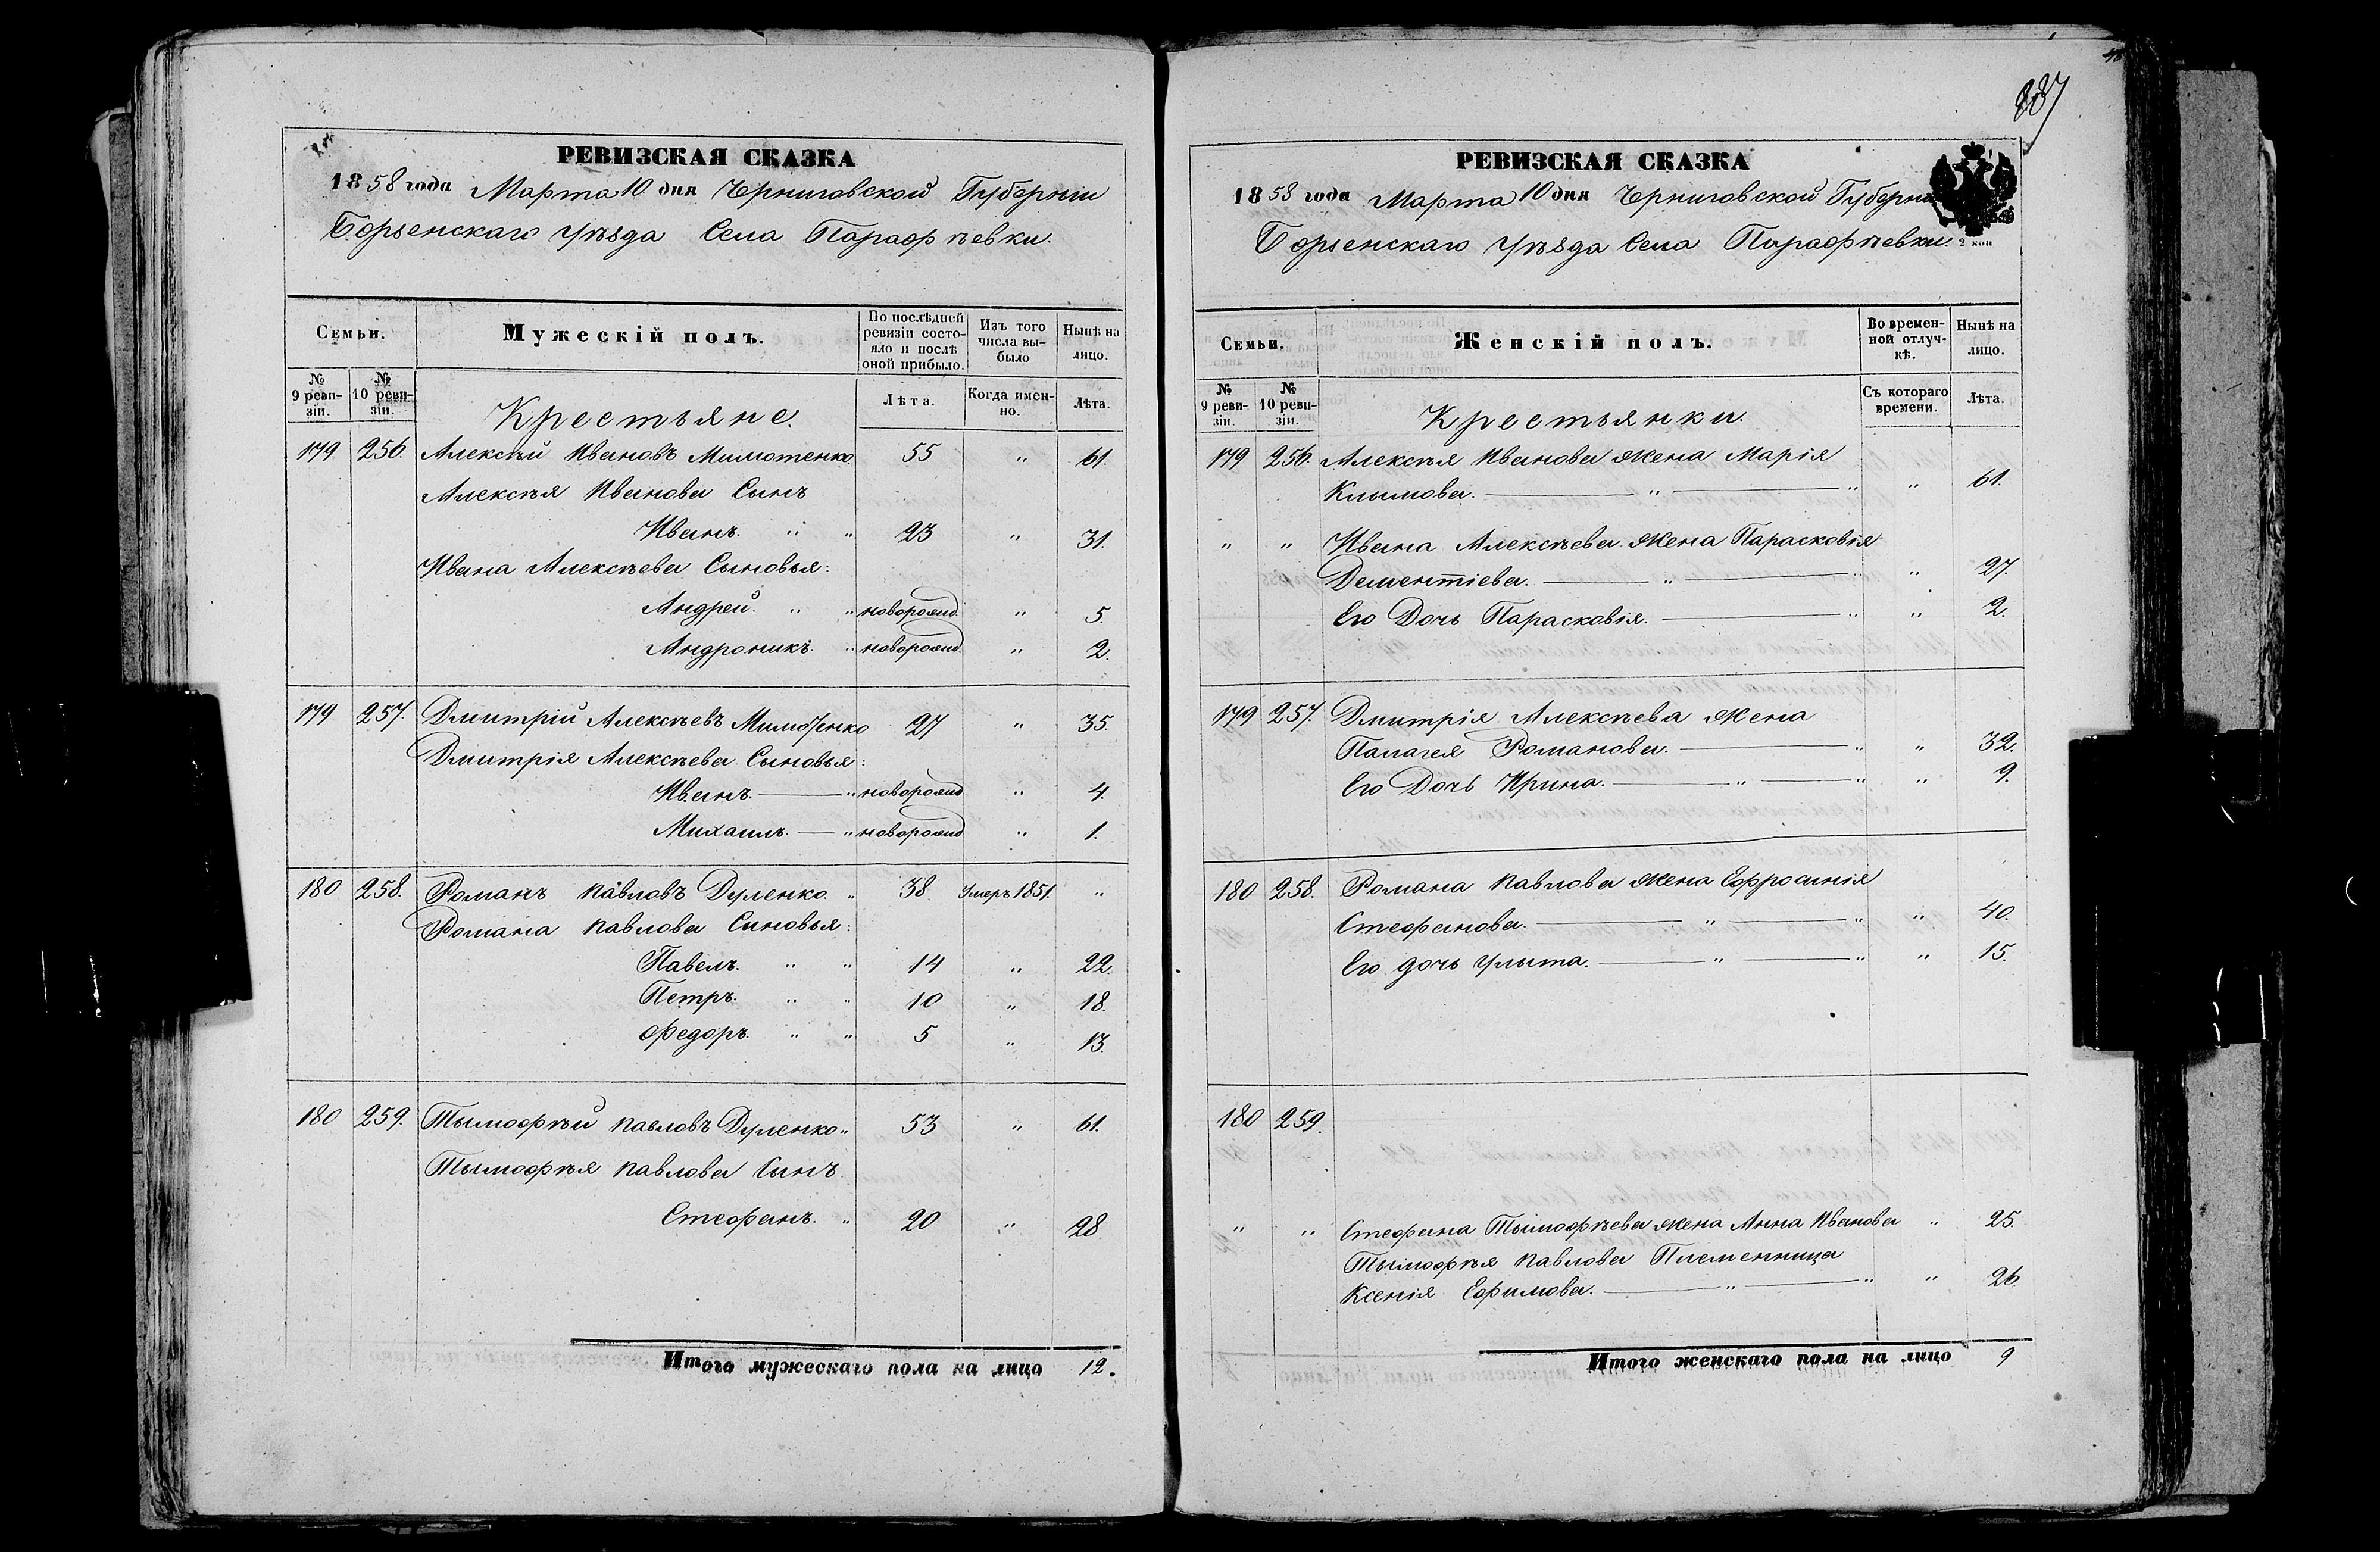 РЕВИЗСКАЯ СКАЗКА
1858 года Марта 10 дня Черниговской Губерніи
Борзенскаго Уѣзда Села Парафѣевки.
Семьи.
Мужескій полъ.
По послѣдней ревизіи состояло и послѣ оной прибыло.
Изъ того числа выбыло
Нынѣ на лицо.
№ 9 ревизіи.
№ 10 ревизіи.
Крестьяне.
Лѣта.
Когда именно.
Лѣта.
179 256. Алексѣй Ивановъ Милютенко 55 " 61.
Алексѣя Иванова Сынъ
Иванъ. " " 23 " 31.
Ивана Алексѣева Сыновья:
Андрей. " " новорожд. " 5.
Андроникъ. " новорожд. " 2.
179 257. Дмитрій Алексѣевъ Милютенко 27 " 35.
Дмитрія Алексѣева Сыновья:
Иванъ. — " новорожд " 4.
Михаилъ. — " новорожд " 1.
180 258. Романъ Павловъ Дуленко. " 38. Умеръ 1851. "
Романа Павлова Сыновья:
Павелъ. " " 14 " 22.
Петръ. " " 10 " 18.
Федоръ. " " 5 " 13.
180 259. Тымофѣй Павловъ Дуленко " 53 " 61.
Тымофѣя Павлова Сынъ
Стефанъ. " 20 " 28
Итого мужескаго пола на лицо 12.
837
РЕВИЗСКАЯ СКАЗКА
1858 года Марта 10 дня Черниговской Губерніи
Борзенскаго Уѣзда Села Парафѣевки
2 коп
Семьи.
Женскій полъ.
Во временной отлучкѣ.
Нынѣ на лицо.
№ 9 ревизіи.
№ 10 ревизіи.
Крестьянки.
Съ котораго времени.
Лѣта.
179 256. Алексѣя Иванова жена Марія
Клымова. — " — " " 61.
" " Ивана Алексѣева жена Парасковія
Дементіева. — " — " " 27.
Его Дочь Парасковія. — " " 2.
179 257. Дмитрія Алексѣева жена
Палагея Романова. — " " 32.
Его Дочь Ирина. — " — " " 9.
180 258. Романа Павлова жена Ефросинія
Стефанова. — " — " " 40.
Его дочь Улыта. — " — " " 15.
180 259.
" " Стефана Тымофѣева жена Анна Иванова " 25.
Тымофѣя Павлова Племенница
Ксенія Ефимова. — " — " " 26.
Итого женскаго пола на лицо 9